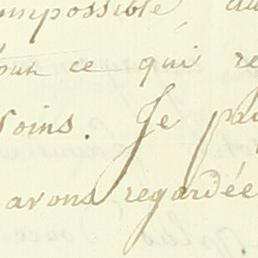 impossible,
tout ce qui re
soins. Je pa
avons regardée